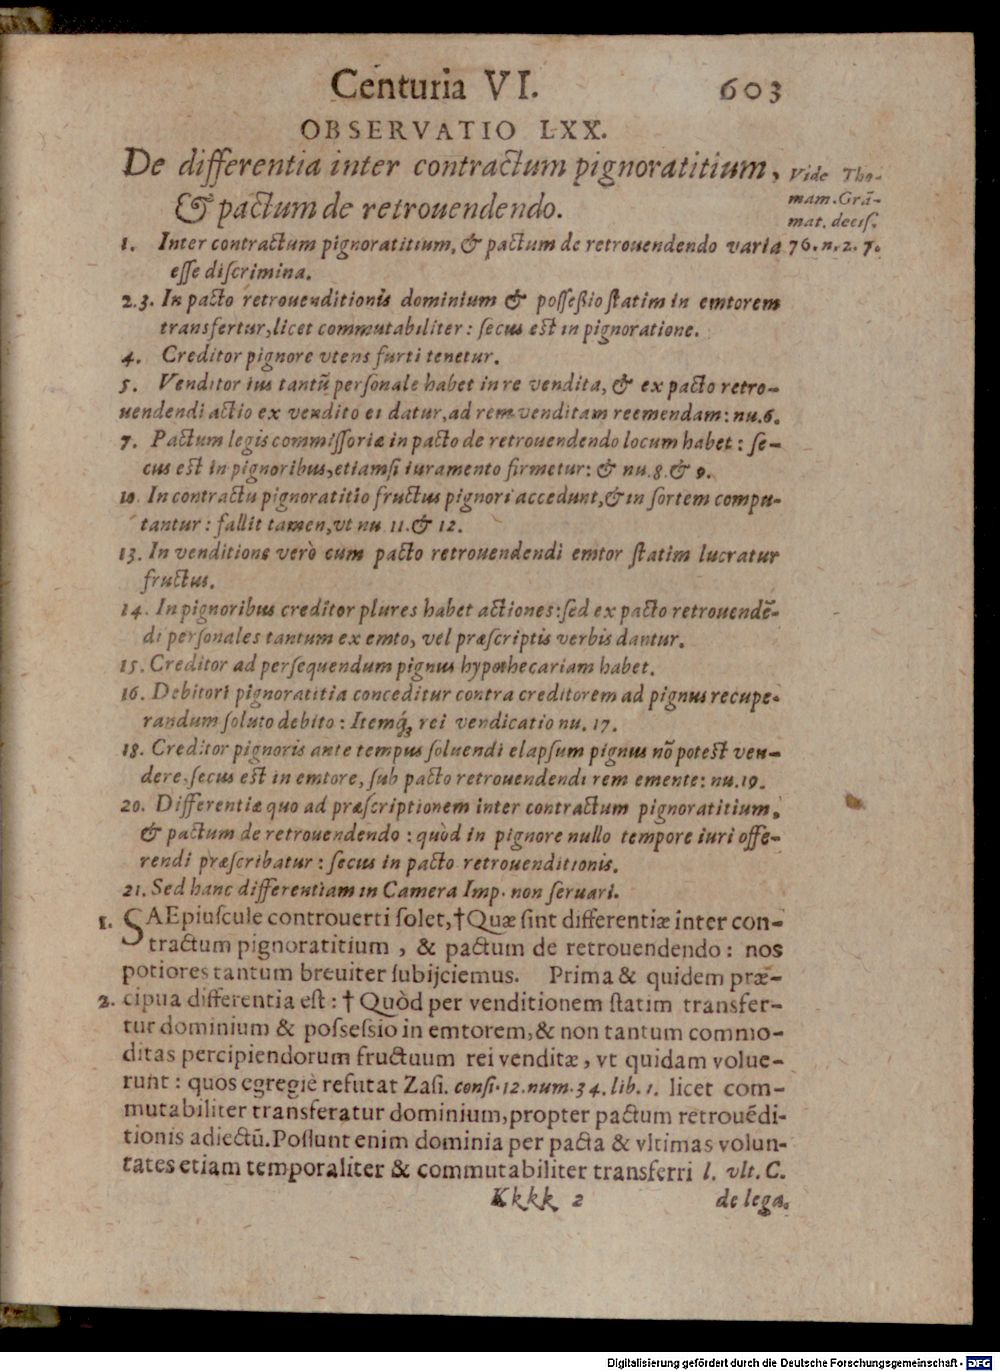 Centuria VI. 603
OBSERVATIO LXX.
De differentia inter contractum pignoratitium,
& pactum de retrouendendo.
Vide Tho-
mam. Grā-
mat. decis.
76. n. 2. 7.
1. Inter contractum pignoratitium, & pactum de retrouendendo varia
esse discrimina.
2.3. In pacto retrouenditionis dominium & possessio statim in emtorem
transfertur, licet commutabiliter: secus est in pignoratione.
4. Creditor pignore vtens furti tenetur.
5. Venditor ius tantū personale habet in re vendita, & ex pacto retro-
uendendi actio ex vendito ei datur, ad rem venditam reemendam: nu.6.
7. Pactum legis commissoriæ in pacto de retrouendendo locum habet: se-
cus est in pignoribus, etiamsi iuramento firmetur: & nu.8. & 9.
10. In contractu pignoratitio fructus pignori accedunt, & in sortem compu-
tantur: fallit tamen, vt nu 11. & 12.
13. In venditione verò cum pacto retrouendendi emtor statim lucratur
fructus.
14. In pignoribus creditor plures habet actiones: sed ex pacto retrouendē-
di personales tantum ex emto, vel præscriptis verbis dantur.
15. Creditor ad persequendum pignus hypothecariam habet.
16. Debitori pignoratitia conceditur contra creditorem ad pignus recupe-
randum soluto debito: Itemq́ꝫ rei vendicatio nu. 17.
18. Creditor pignoris ante tempus soluendi elapsum pignus nō potest ven-
dere, secus est in emtore, sub pacto retrouendendi rem emente: nu.19.
20. Differentiæ quo ad præscriptionem inter contractum pignoratitium,
& pactum de retrouendendo: quòd in pignore nullo tempore iuri offe-
rendi præscribatur: secus in pacto retrouenditionis.
21. Sed hanc differentiam in Camera Imp. non seruari.
1. SAEpiuscule controuerti solet, † Quæ sint differentiæ inter con-
tractum pignoratitium, & pactum de retrouendendo: nos
potiores tantum breuiter subijciemus. Prima & quidem præ-
2. cipua differentia est: † Quòd per venditionem statim transfer-
tur dominium & possessio in emtorem, & non tantum commo-
ditas percipiendorum fructuum rei venditæ, vt quidam volue-
runt: quos egregiè refutat Zasi. consi. 12. num. 34. lib. 1. licet com-
mutabiliter transferatur dominium, propter pactum retrouēdi-
tionis adiectū. Possunt enim dominia per pacta & vltimas volun-
tates etiam temporaliter & commutabiliter transferri l. vlt. C.
Kkkk 2 de lega.
Digitalisierung gefördert durch die Deutsche Forschungsgemeinschaft - DFG